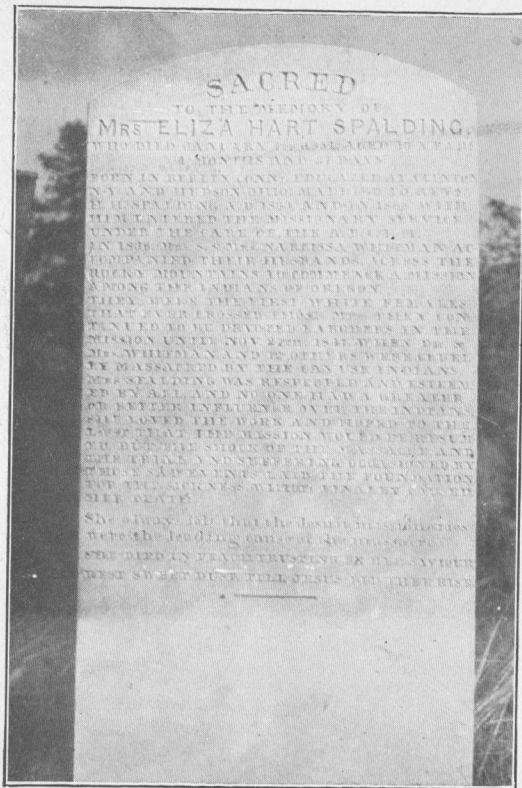 SACRED
TO THE MEMORY OF
MRS ELIZA HART SPALDING.
WHO DIED JANUARY AGED YEARS
MONTHS AND DAYS
BORN IN BERLIN CONN. EDUCATED AT CLINTON
N.Y. AND HUDSON OHIO MARRIED TO REV.
H. H. SPALDING A.D. AND IN WITH
HIM ENTERED THE MISSIONARY SERVICE
UNDER THE CARE OF THE
IN 1836 MRS. S. & MRS. NARCISSA WHITMAN AC
COMPANIED THEIR HUSBANDS ACROSS THE
ROCKY MOUNTAINS TO COMMENCE A MISSION
AMONG THE INDIANS OF OREGON
THEY WERE THE FIRST WHITE FEMALES
THAT EVER CROSSED THOSE MTNS. THEY CON
TINUED TO BE DEVOTED LABORERS IN THE
MISSION UNTIL NOV 1847 WHEN DR. &
MRS. WHITMAN AND 12 OTHERS WERE CRUEL
LY MASSACRED BY THE CAYUSE INDIANS
MRS SPALDING WAS RESPECTED AND ESTEEM
ED BY ALL AND NO ONE HAD A GREATER
OR BETTER INFLUENCE OVER THE INDIANS
SHE LOVED THE WORK AND HOPED TO THE
LAST THAT THE MISSION WOULD BE RESUM
ED BUT THE SHOCK OF THE MASSACRE AND
THE TRIALS AND SUFFERING OCCASIONED BY
THOSE SAD EVENTS LAID THE FOUNDATION
FOR THE SICKNESS WHICH FINALLY CAUSED
HER DEATH
She always felt that the Jesuit missionaries
were the leading cause of the massacre
SHE DIED IN PEACE TRUSTING IN HER SAVIOUR
REST SWEET DUST TILL JESUS BID THEE RISE